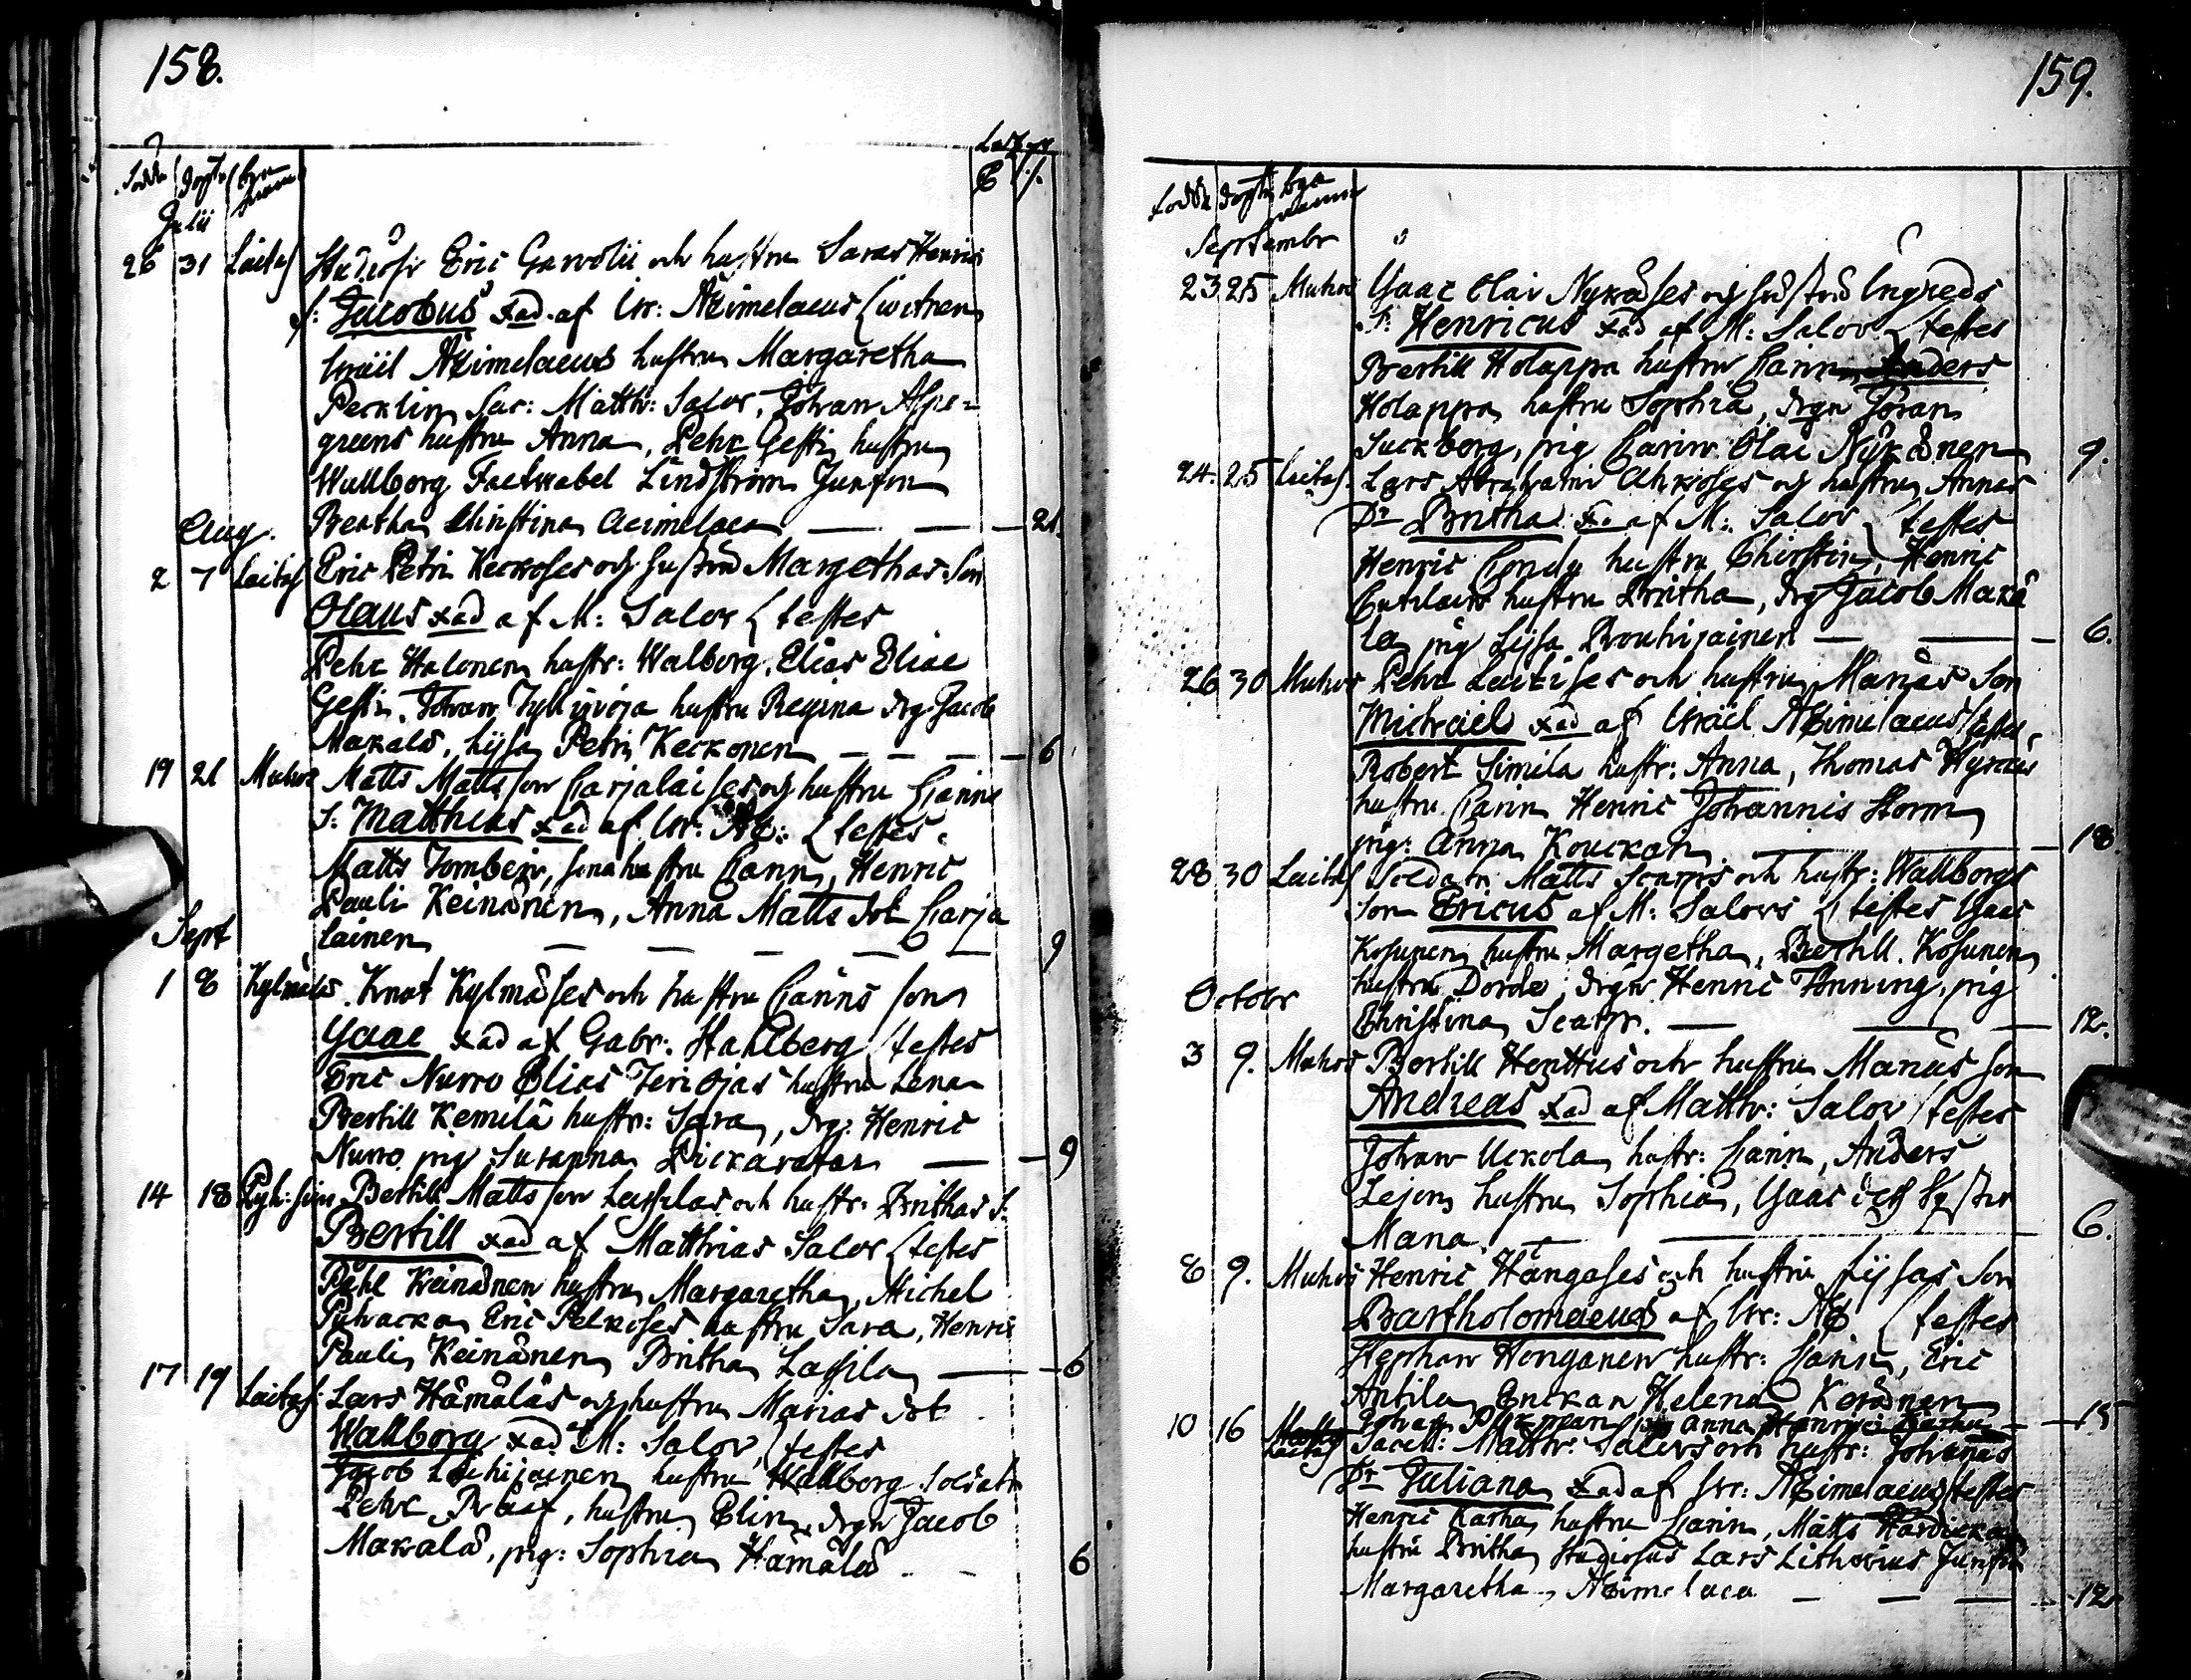 158.
Födde döpte byanamn
Julii
26 31 Laitas Studiosi Eric Garvolii och hustru Saras Henrici
f: Jacobus xad. af Isr: Æimelaeus
Israël Æimelaeus hustru Margaretha
Pecklin, Sac: Matth: Salov, Johan Alpe-
greens hustru Anna, Pehr Gesti hustru
Wallborg Lindström Junfru
Beatha Christina Aeimelaea — — 21.
Aug.
2 7 Laitas Eric Petri Keckoses och hustru Margethas Son
Olaus xad af M: Salov testes
Pehr Halonen hustr: Walborg, Elias Eliae
Gesti, Johan hustru Regina drg Jacob
Makala, Lijsa Petri Keckonen — — — 6
19 21 Muhos Matts Matts son Carjalaises och hustru Carins
S: Matthias xad af Isr: Æ: testes
Matts Tomberi, hustru Carin, Henric
Pauli Keinånen, Anna Matts dot Carja
lainen — — — — — 9
Sept
1 8 Kylmälä Knut Kylmäses och hustru Carins son
Ysaac xad af Gabr: Stahlberg testes
Eric Nurro Elias hustru Lena
Bertill Kemilä hustr: Sara, drg: Henric
Nurro pig Susanna — 9
14 18 Bertill Matts son Lassilas och hustr: Brithas S:
Bertill xad af Matthias Salov testes
Påhl Keinånen hustru Margaretha, Michel
Eric Pelkoses hustru Sara, Henric
Pauli Keinånen Britha Lassila — 6
17 19 Laitas: Lars Hämäläs och hustru Marias dot
Wallborg xad af M: Salov, testes
Jacob hustru Wallborg Soldatn
Pehr Raaf, hustru Elin, drgn Jacob
Makala, pig: Sophia Hämälä 6
159.
Födde döpte bya namn
Septembr
23 25 Muhos Ysaac Olai Nykäses och hustru Ingreds
S: Henricus xad af M: Salov testes
Bertill Holappa hustru Carin, Anders
Holappa hustru Sophia, drgn Jöran
Suckborg, pig Carin Olai Nykänen 9.
24. 25 Laitas. Lars Abrahami Ahkioses och hustru Annas
Dr Britha xad af M: Salov testes
Henric hustru Chirstin, Henric
hustru Britha, drg Jacob Makä
la, pig Lijsa — — — 6.
26 30 Muhos Pehr Lautises och hustru Marias Son
Michaël xad af Israël Æimelaeus testes
Robert Simila hustr: Anna, Thomas
hustru Carin Henric Johannis Storm
pig: Anna — — 18
28 30 Laitas Soldatn Matts Scarps och hustr: Wallborgs
Son Ericus af M: Salovs testes Ysaac
Kosunen hustru Margetha, Bertill Kosunen
hustru Dorde, drgn Henric Tönning, pig
Christina Scarp. — — 12.
Octobr
3 9. Muhos Bertill Henttus och hustru Marias son
Andreas xad af Matth: Salov testes
Johan Uckola, hustr: Carin, Anders
Lejon hustru Sophia, Ysaac
Maria — — 6.
8 9. Muhos Henric Hångases och hustru Lijsas Son
Bartholomaeus af Isr: Æ testes
Stephan Honganen hustr: Carin, Eric
Antila Enckan Helena
Johan Anna Henrici — 15
10 16 Laitas Sacell: Matth: Salovs och hustr: Johanas
Dr Juliana xad af Isr: Æimelaeus testes
Henric Karha, hustru Carin, Matts
hustru Britha Studiosus Lars Lithovius Junfru
Margaretha Æimelaea — — — 12